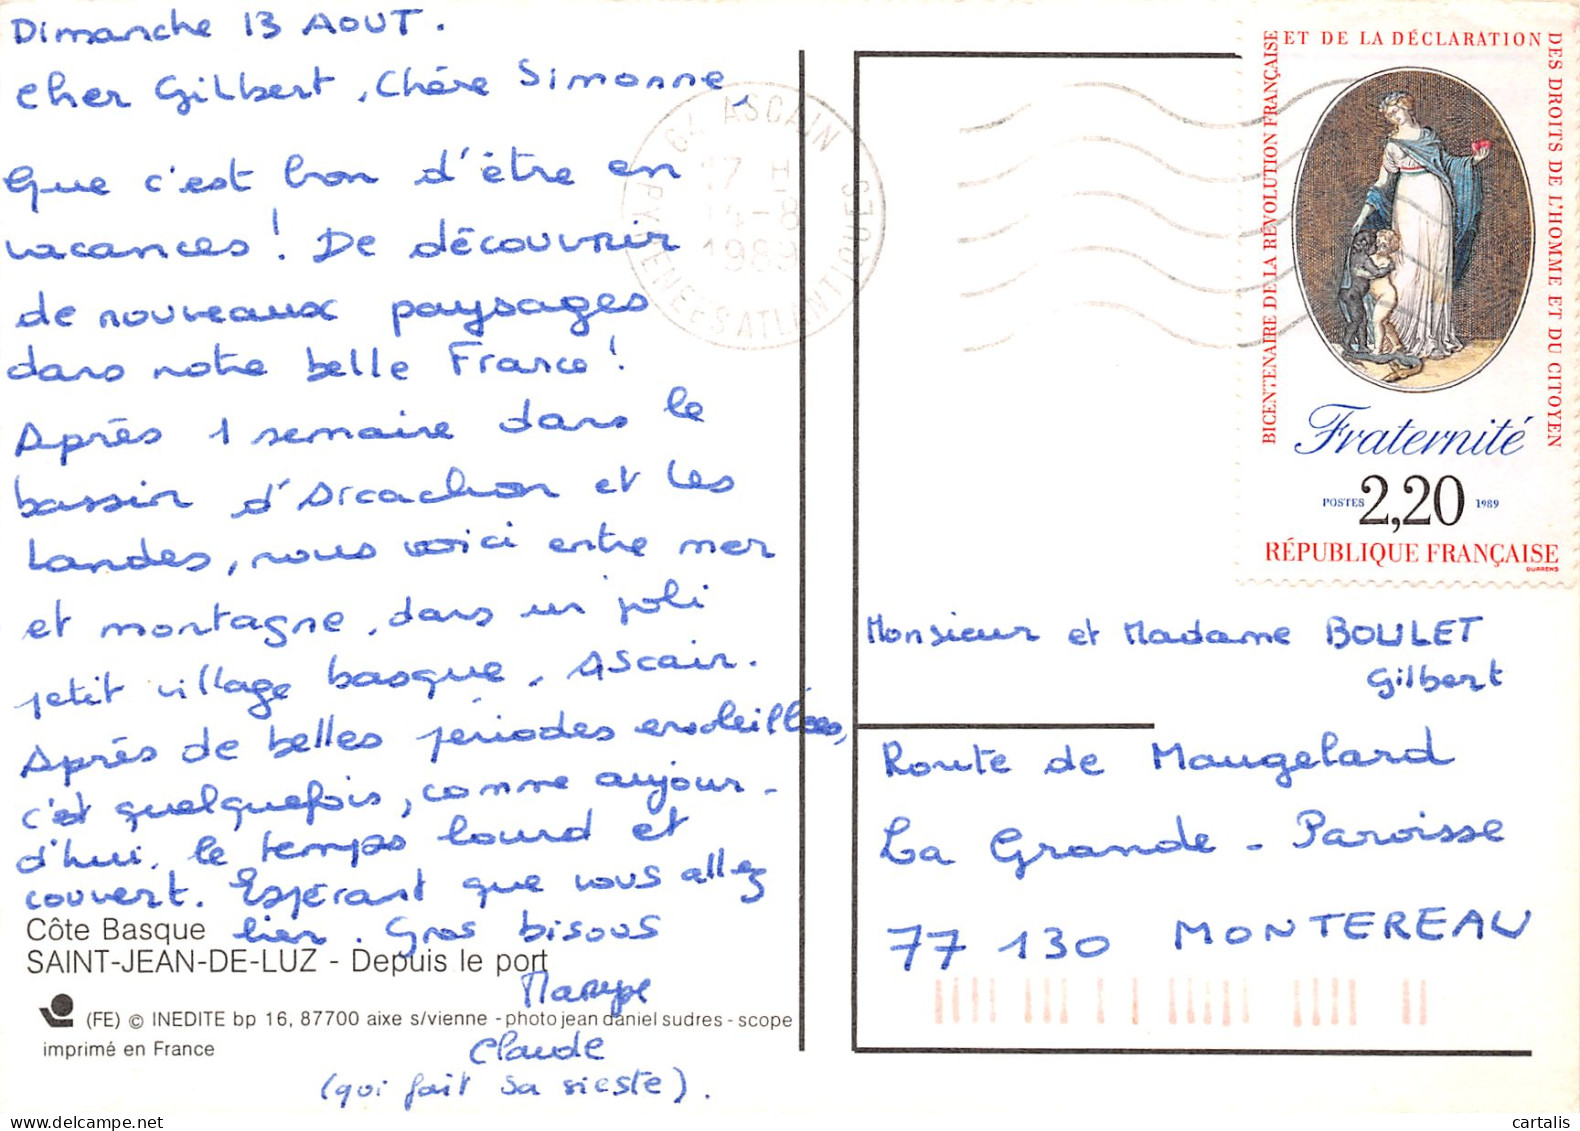 Dimanche 13 AOUT.
Cher Gilbert, Chère Simonne,
Que c'est bon d'être en
vacances! De découvrir
de nouveaux paysages
dans notre belle France!
Après 1 semaine dans le
bassin d'Arcachon et les
Landes, nous voici entre mer
et montagne, dans un joli
petit village basque, Ascain.
Après de belles périodes ensoleillées,
c'est quelquefois, comme aujour-
d'hui, le temps lourd et
couvert. Espérant que vous allez
bien. Gros bisous
Claude
(qui fait sa sieste).
Côte Basque
SAINT-JEAN-DE-LUZ - Depuis le port
(FE) © INEDITE bp 16, 87700 aixe s/vienne - photo jean daniel sudres - scope
imprimé en France
64 ASCAIN
17 H
14-8
1989
PYRENEES ATLANTIQUES
BICENTENAIRE DE LA RÉVOLUTION FRANÇAISE
ET DE LA DÉCLARATION
DES DROITS DE L'HOMME ET DU CITOYEN
Fraternité
POSTES 2,20 1989
RÉPUBLIQUE FRANÇAISE
DURRENS
Monsieur et Madame BOULET
Gilbert
Route de Maugelard
La Grande-Paroisse
77 130 MONTEREAU
cartalis